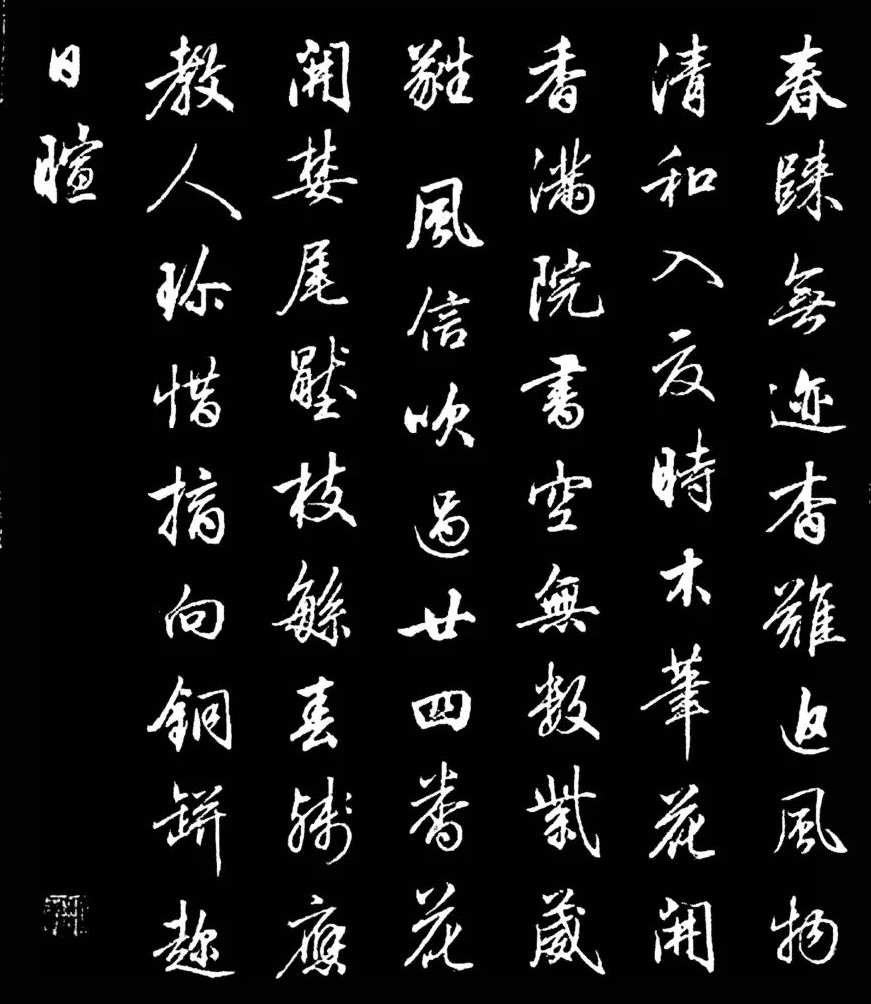 春歸無迹杳難返風物
清和入夏時木筆花開
香滿院書空無數紫葳
蕤 風信吹過廿四番花
開婪尾壓枝繁春殘應
教人珍惜摘向銅缾趁
日暄